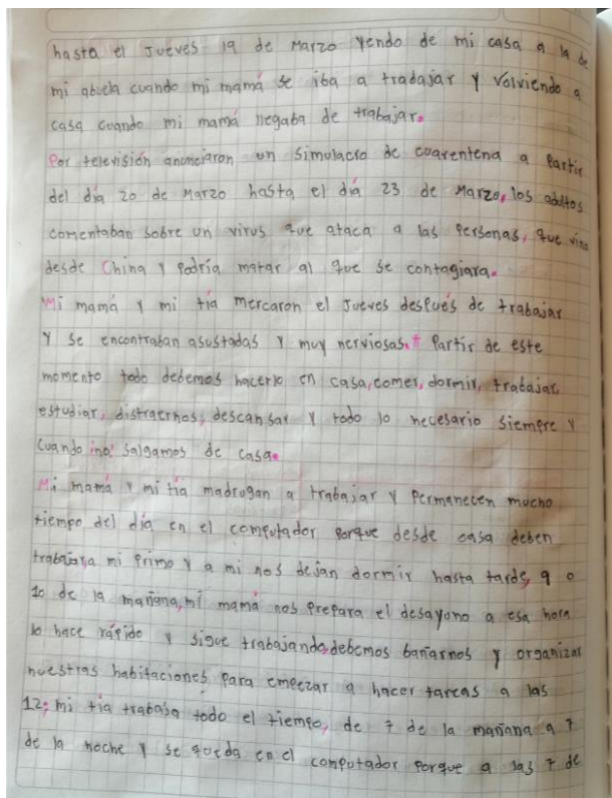 hasta el Jueves 19 de Marzo yendo de mi casa a la de
mi abuela cuando mi mamá se iba a tradajar y volviendo a
casa cuando mi mamá llegaba de trabajar.
Por televisión anunciaron un simulacro de cuarentena a partir
del día 20 de Marzo hasta el día 23 de Marzo, los adultos
comentaban sobre un virus que ataca a las personas, que vino
desde China y podría matar al que se contagiara.
Mi mamá y mi tía mercaron el Jueves después de trabajar
y se encontraban asustadas y muy nerviosas. Partir de este
momento todo debemos hacerlo en casa, comer, dormir, trabajar,
estudiar, distraernos, descansar y todo lo necesario siempre y
cuando ¡no! salgamos de casa.
Mi mamá y mi tía madrugan a trabajar y permanecen mucho
tiempo del día en el computador porque desde casa deben
trabajar, a mi primo y a mi nos dejan dormir hasta tarde, 9 o
10 de la mañana, mi mamá nos prepara el desayono a esa hora
lo hace rápido y sigue trabajando, debemos bañarnos y organizar
nuestras habitaciones para emeezar a hacer tareas a las
12; mi tía trabaja todo el tiempo, de 7 de la mañana a 7
de la noche y se queda en el computador porque a las 7 de